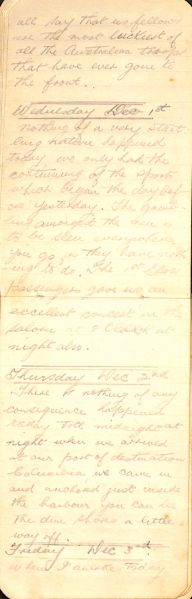 all say that us fellows
are the most luckiest of
all the Australian troops
that have ever gone to
the front.
Wednesday Dec 1st
Nothing of a very start
ling nature happened
today, we only had the
continuing of the sports
which began the day bef
ore yesterday. The
amongst the men is
to be seen everywhere
you go, as they have noth
ing to do. The 1st Class
passengers gave us an
excellent concert in the
saloon at 8 O'clock at
night also.
Thursday Dec 2nd
There is nothing of any
consequence happened
today till midnight
night when we arrived
at our port of destination
we came in
and anchored just inside
the harbour you can see
the dim shores a little
way off.
Friday Dec 3rd
When I awoke today